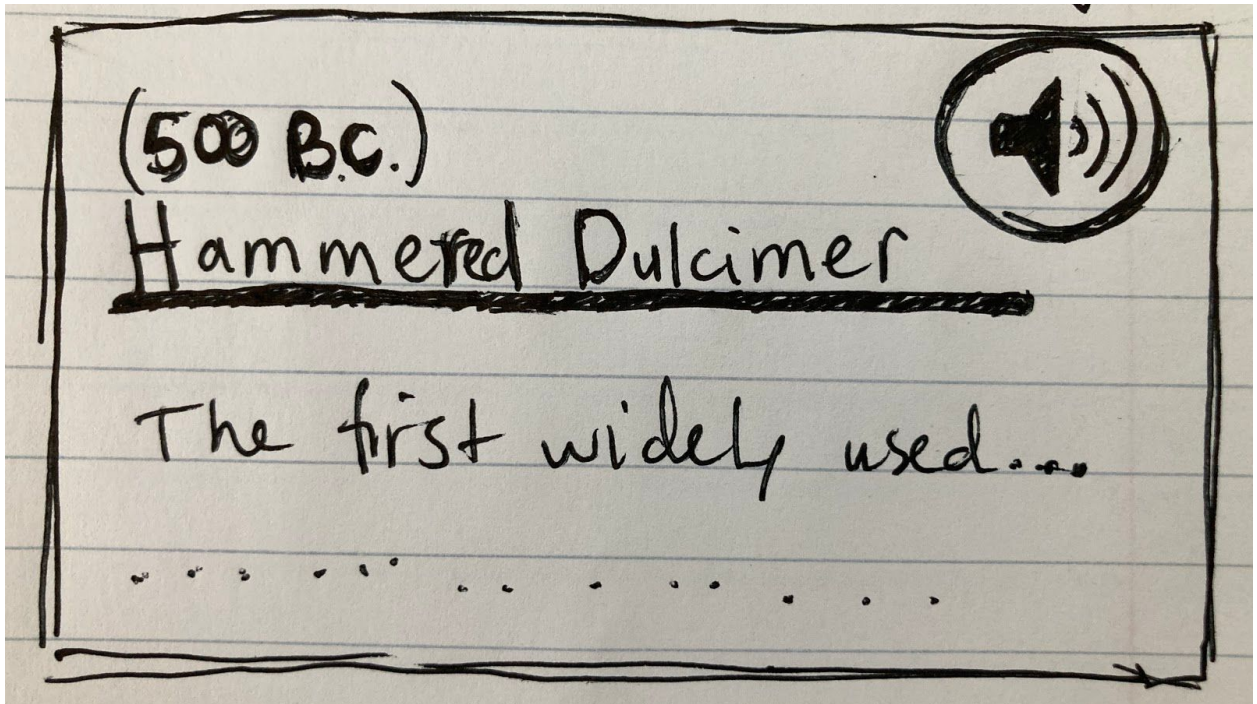 (500 B.C.)
Hammered Dulcimer
The first widely used....